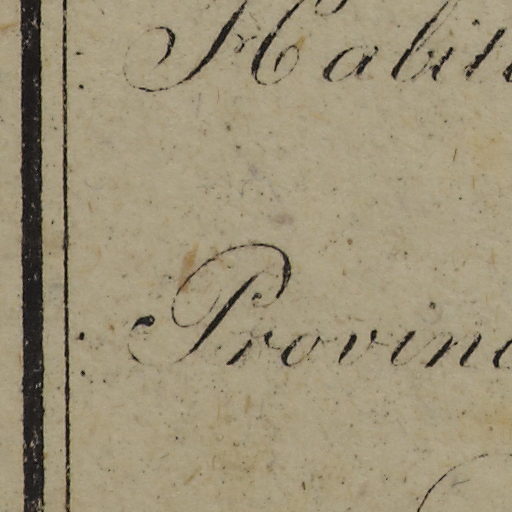 Habit
Provin